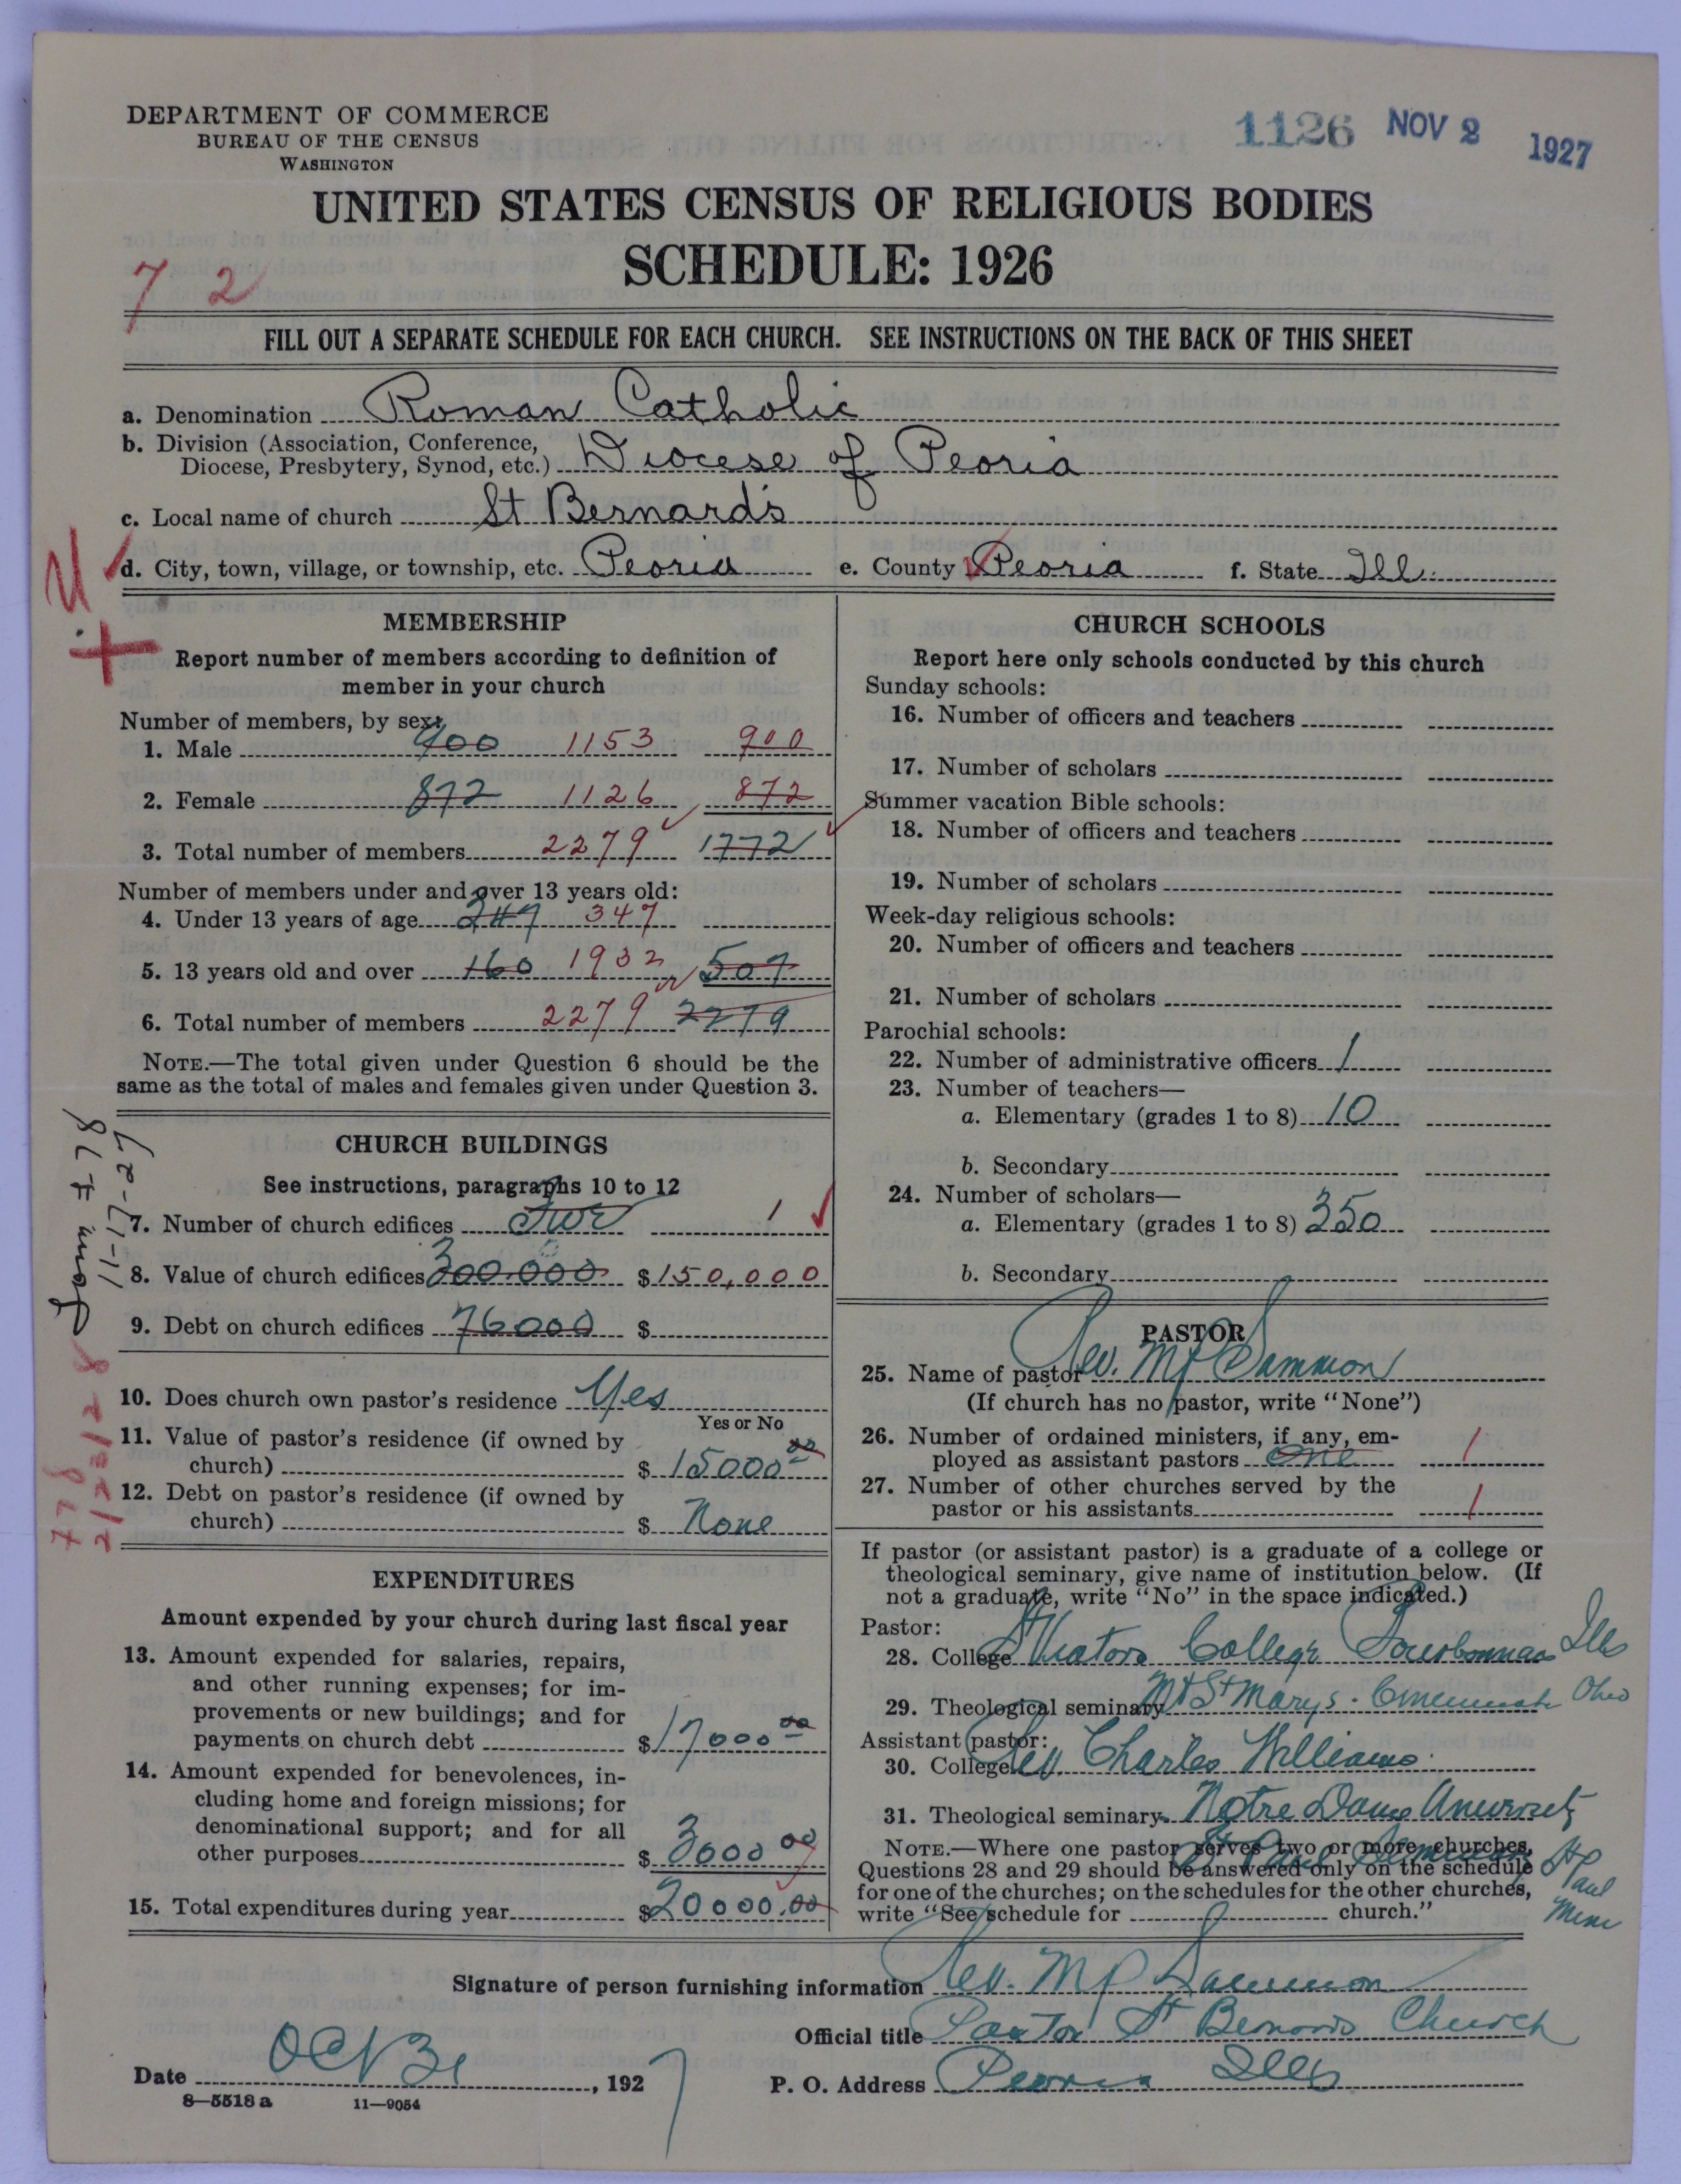 DEPARTMENT OF COMMERCE
BUREAU OF THE CENSUS
WASHINGTON
1126 NOV 2 1927
UNITED STATES CENSUS OF RELIGIOUS BODIES
SCHEDULE: 1926
7 2
FILL OUT A SEPARATE SCHEDULE FOR EACH CHURCH. SEE INSTRUCTIONS ON THE BACK OF THIS SHEET
a. Denomination Roman Catholic
b. Division (Association, Conference,
Diocese, Presbytery, Synod, etc.) Diocese of Peoria
c. Local name of church St Bernard's
d. City, town, village, or township, etc. Peoria e. County Peoria f. State Ill.
MEMBERSHIP
Report number of members according to definition of
member in your church
Number of members, by sex:
1. Male 900 1153 900
2. Female 872 1126 872
3. Total number of members 2279 1772
Number of members under and over 13 years old:
4. Under 13 years of age 347 347
5. 13 years old and over 160 1932 507
6. Total number of members 2279 2279
NOTE.—The total given under Question 6 should be the
same as the total of males and females given under Question 3.
CHURCH BUILDINGS
See instructions, paragraphs 10 to 12
7. Number of church edifices Two 1
8. Value of church edifices 300.000 $150,000
9. Debt on church edifices 76000 $
10. Does church own pastor's residence Yes
Yes or No
11. Value of pastor's residence (if owned by
church) $ 15000 00
12. Debt on pastor's residence (if owned by
church) $ None
EXPENDITURES
Amount expended by your church during last fiscal year
13. Amount expended for salaries, repairs,
and other running expenses; for im-
provements or new buildings; and for
payments on church debt $17000 00
14. Amount expended for benevolences, in-
cluding home and foreign missions; for
denominational support; and for all
other purposes $ 3000 00
15. Total expenditures during year $20000.00
11-17-27
778
2/23/28
CHURCH SCHOOLS
Report here only schools conducted by this church
Sunday schools:
16. Number of officers and teachers
17. Number of scholars
Summer vacation Bible schools:
18. Number of officers and teachers
19. Number of scholars
Week-day religious schools:
20. Number of officers and teachers
21. Number of scholars
Parochial schools:
22. Number of administrative officers 1
23. Number of teachers—
a. Elementary (grades 1 to 8) 10
b. Secondary
24. Number of scholars—
a. Elementary (grades 1 to 8) 350
b. Secondary
PASTOR
25. Name of pastor Rev. MP Sammon
(If church has no pastor, write "None")
26. Number of ordained ministers, if any, em-
ployed as assistant pastors one 1
27. Number of other churches served by the
pastor or his assistants 1
If pastor (or assistant pastor) is a graduate of a college or
theological seminary, give name of institution below. (If
not a graduate, write "No" in the space indicated.)
Pastor:
28. College St Viators College Bourbonnais Ills
29. Theological seminary Mt St Marys. Cincinnati Ohio
Assistant pastor:
30. College Rev. Charles Williams.
31. Theological seminary Notre Dame University
St Paul Seminary St Paul Minn
NOTE.—Where one pastor serves two or more churches,
Questions 28 and 29 should be answered only on the schedule
for one of the churches; on the schedules for the other churches,
write "See schedule for church."
Signature of person furnishing information Rev. MP Sammon
Official title Pastor St Bernards Church
Date Oct 31, 1927 P. O. Address Peoria Ills
8—5518 a 11—9054